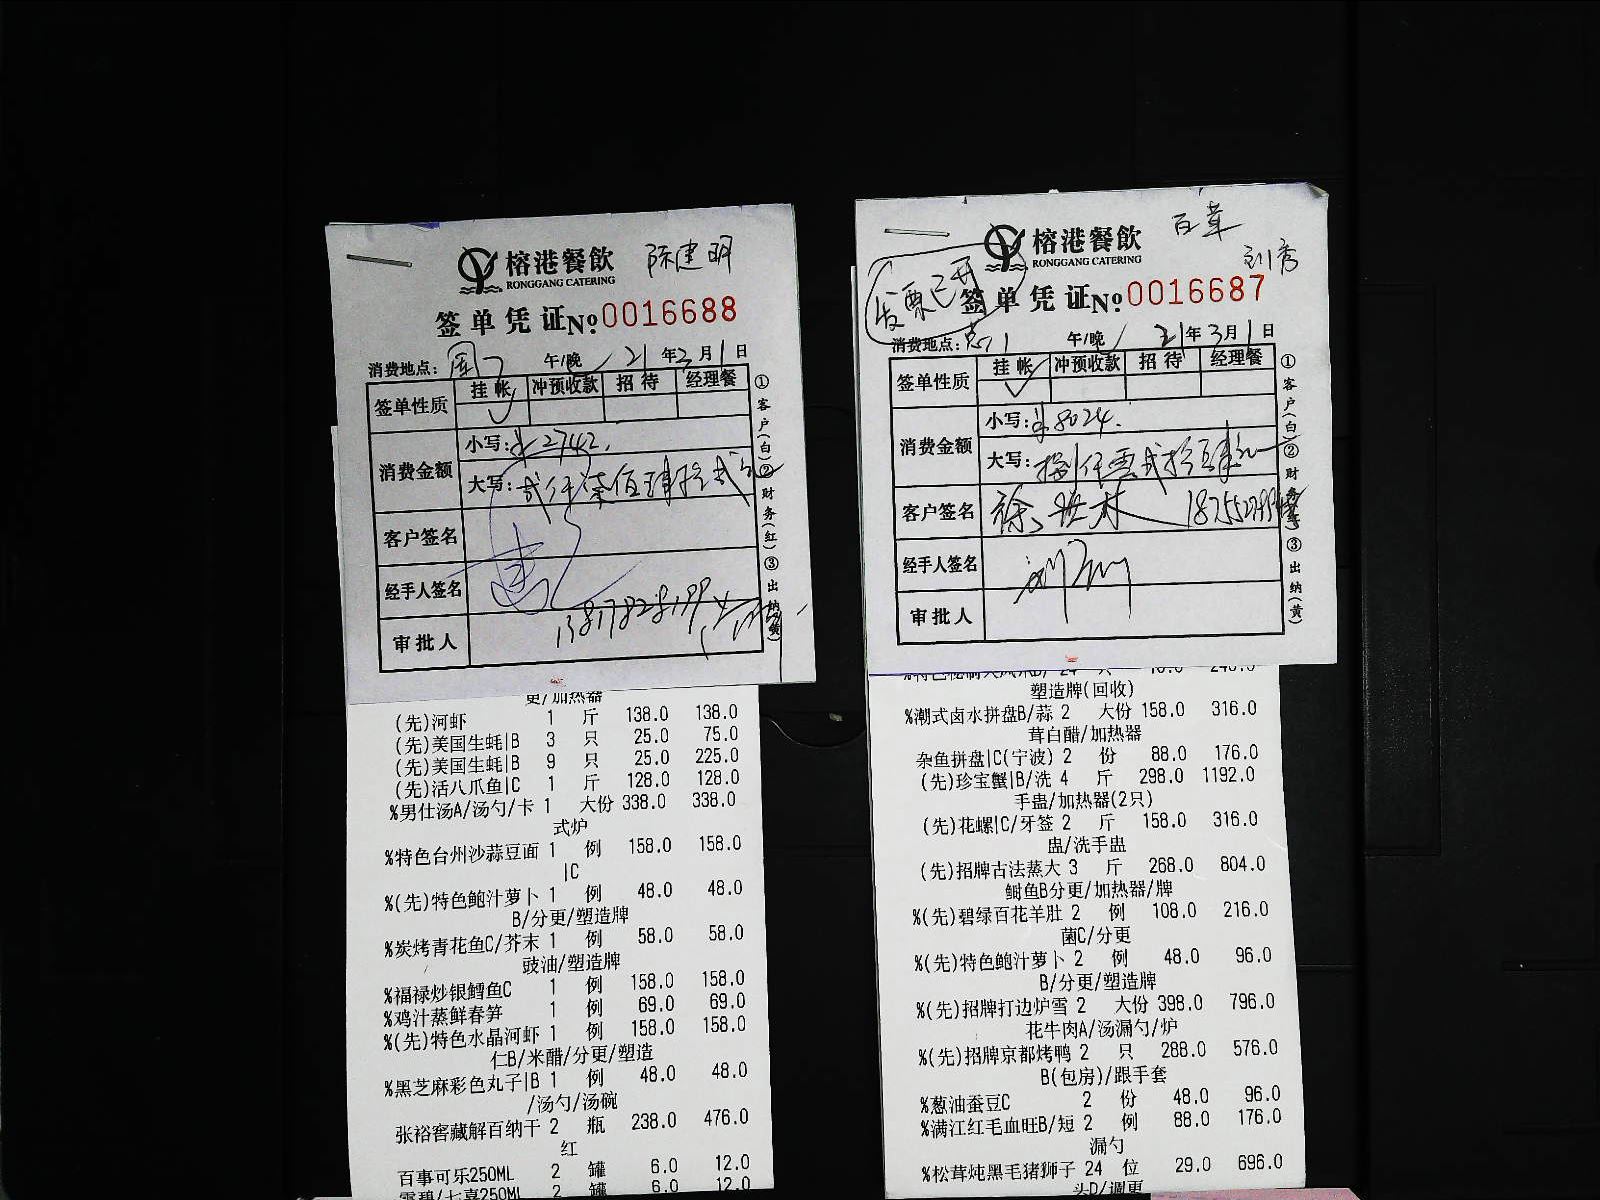 榕港餐飲 陈建明
RONGGANG CATERING
签单凭证 No 0016688
消费地点: 午/晚 21年3月1日
签单性质 挂帐 冲预收款 招待 经理餐
消费金额 小写: ¥2742.
大写: 贰仟柒佰肆拾贰元
客户签名
经手人签名
审批人
①客户(白)②财务(红)③出纳(黄)
更/加热器
(先)河虾 1 斤 138.0 138.0
(先)美国生蚝|B 3 只 25.0 75.0
(先)美国生蚝|B 9 只 25.0 225.0
(先)活八爪鱼|C 1 斤 128.0 128.0
%男仕汤A/汤勺/卡 1 大份 338.0 338.0
式炉
%特色台州沙蒜豆面 1 例 158.0 158.0
|C
%(先)特色鲍汁萝卜 1 例 48.0 48.0
B/分更/塑造牌
%炭烤青花鱼C/芥末 1 例 58.0 58.0
豉油/塑造牌
%福禄炒银鳕鱼C 1 例 158.0 158.0
%鸡汁蒸鲜春笋 1 例 69.0 69.0
%(先)特色水晶河虾 1 例 158.0 158.0
仁B/米醋/分更/塑造
%黑芝麻彩色丸子|B 1 例 48.0 48.0
/汤勺/汤碗
张裕窖藏解百纳干 2 瓶 238.0 476.0
红
百事可乐250ML 2 罐 6.0 12.0
雪碧/七喜250ML 2 罐 6.0 12.0
榕港餐飲 百草
RONGGANG CATERING 刘秀
发票已开
签单凭证 No 0016687
消费地点: 午/晚 21年3月1日
签单性质 挂帐 冲预收款 招待 经理餐
消费金额 小写: ¥8024.
大写: 捌仟零贰拾肆元
客户签名
经手人签名
审批人
①客户(白)②财务(红)③出纳(黄)
塑造牌(回收)
%潮式卤水拼盘B/蒜 2 大份 158.0 316.0
茸白醋/加热器
杂鱼拼盘|C(宁波) 2 份 88.0 176.0
(先)珍宝蟹|B/洗 4 斤 298.0 1192.0
手盅/加热器(2只)
(先)花螺|C/牙签 2 斤 158.0 316.0
盅/洗手盅
(先)招牌古法蒸大 3 斤 268.0 804.0
鲥鱼B分更/加热器/牌
%(先)碧绿百花羊肚 2 例 108.0 216.0
菌C/分更
%(先)特色鲍汁萝卜 2 例 48.0 96.0
B/分更/塑造牌
%(先)招牌打边炉雪 2 大份 398.0 796.0
花牛肉A/汤漏勺/炉
%(先)招牌京都烤鸭 2 只 288.0 576.0
B(包房)/跟手套
%葱油蚕豆C 2 份 48.0 96.0
%满江红毛血旺B/短 2 例 88.0 176.0
漏勺
%松茸炖黑毛猪狮子 24 位 29.0 696.0
头D/调更